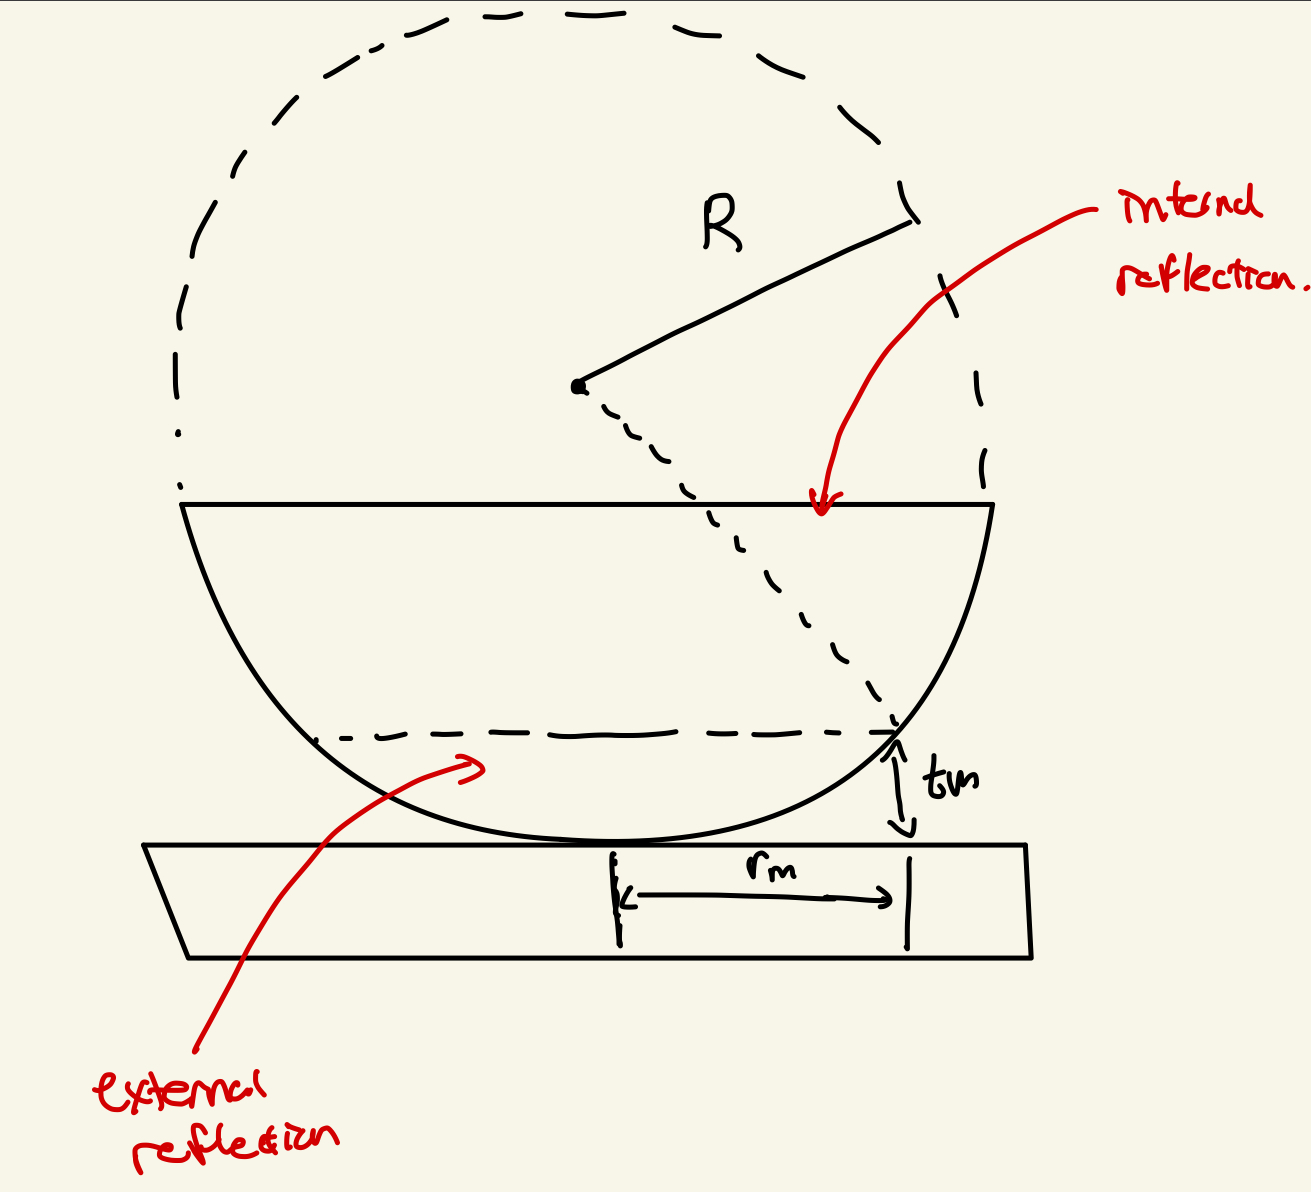 R
internal
reflection.
tm
rm
external
reflection